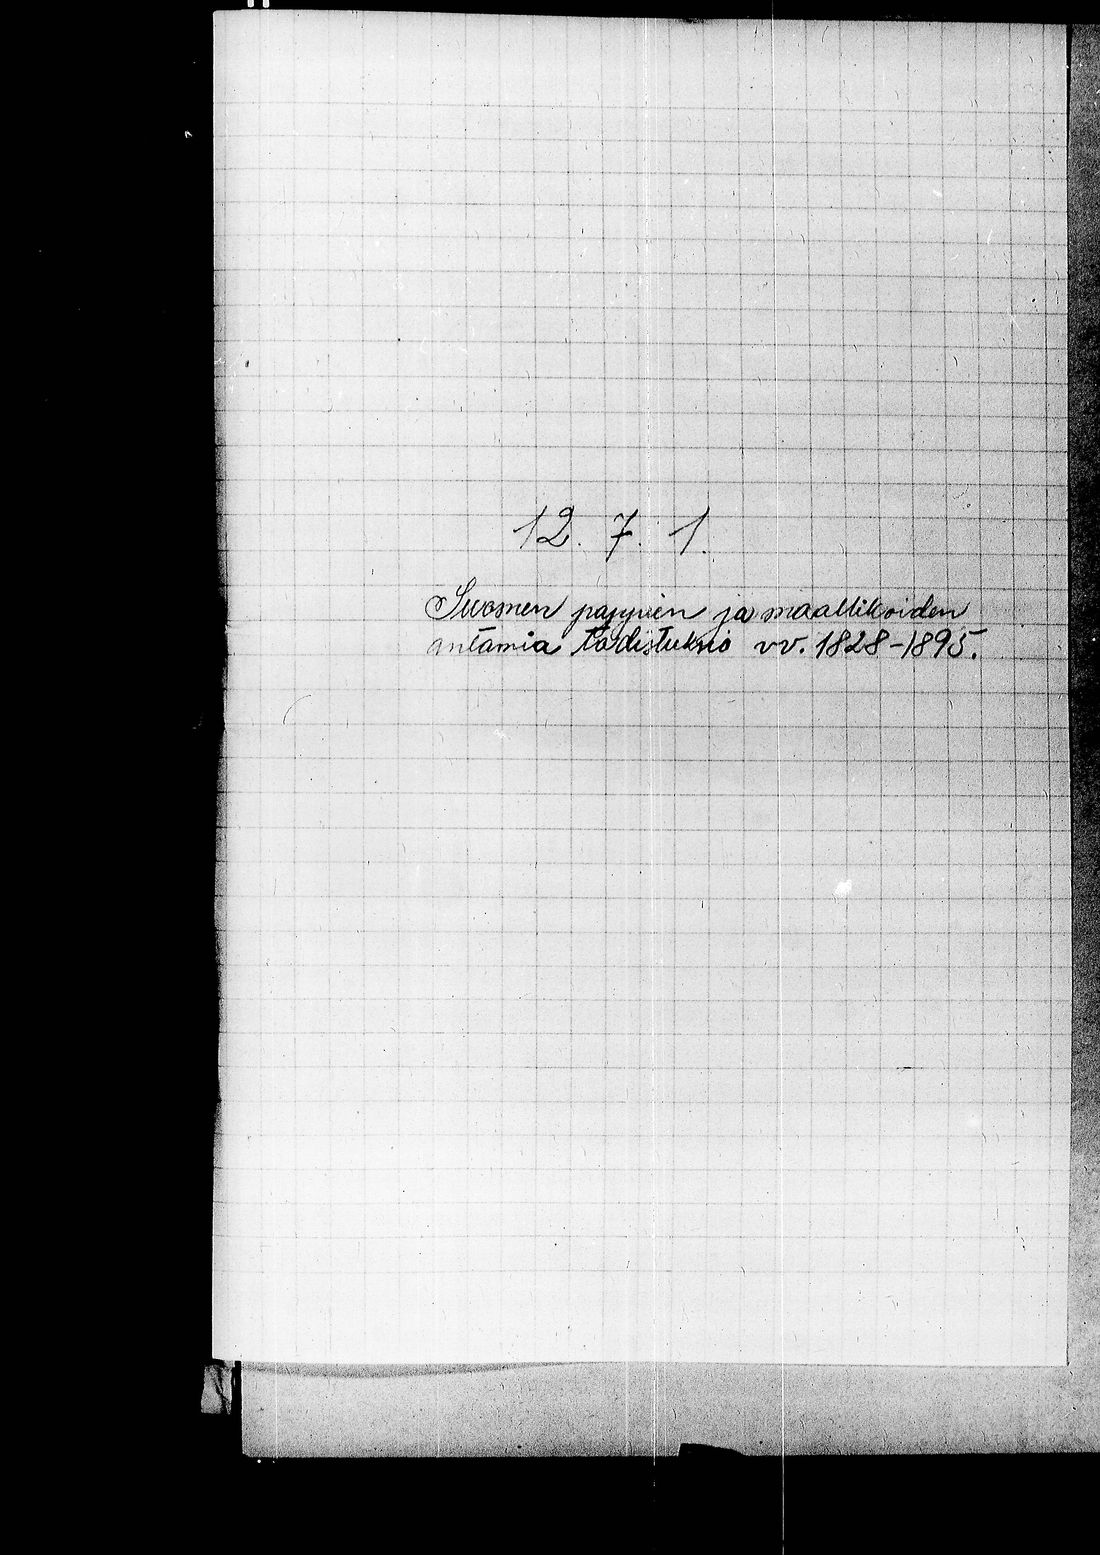 12. 7. 1.
Suomen pappien ja maallikoiden
antamia todistuksia vv. 1828-1895.